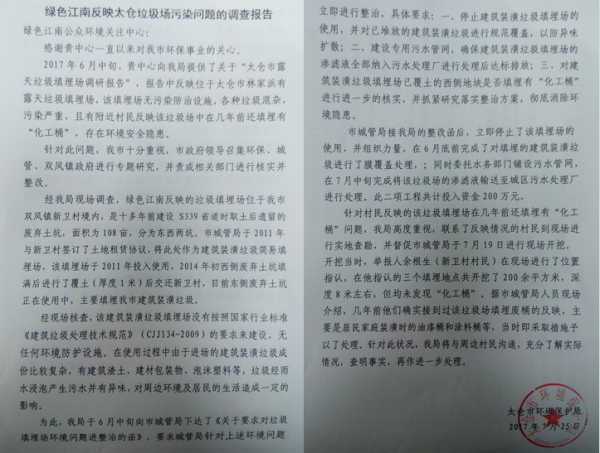 绿色江南反映太仓垃圾场污染问题的调查报告
绿色江南公众环境关注中心：
感谢贵中心一直以来对我市环保事业的关心。
2017年6月中旬，贵中心向我局提供了关于“太仓市露
天垃圾填埋场调研报告”，报告中反映位于太仓市林家浜有
露天垃圾填埋场，该填埋场无污染防治设施，各种垃圾混杂，
污染严重，且有附近村民反映该垃圾场中在几年前还填埋有
“化工桶”，存在环境安全隐患。
针对此问题，我市十分重视，市政府领导召集环保、城
管、双凤镇政府进行专题研究，并责成相关部门进行核实并
整改。
经我局现场调查，绿色江南反映的垃圾填埋场位于我市
双凤镇新卫村境内，是十多年前建设S339省道时取土后遗留的
废弃土坑，面积为108亩，分为东西两坑。市城管局于2011年
与新卫村签订了土地租赁协议，将此处作为建筑装潢垃圾简易填
埋场，该填埋场于2011年投入使用，2014年初西侧废弃土坑填
满后进行了覆土（厚度1米）后交还新卫村。目前东侧废弃土坑
正在使用中，主要填埋我市建筑装潢垃圾。
经现场核查，该建筑装潢垃圾填埋场没有按照国家行业标准
《建筑垃圾处理技术规范》（CJJ134-2009）的要求来建设，无
任何环境防护设施。在使用过程中由于进场的建筑装潢垃圾成
份比较复杂，有建筑渣土、建材包装物、泡沫塑料等，垃圾经雨
水浸泡产生污水并有异味，对周边环境及居民的生活造成一定的
影响。
为此，我局于6月中旬向市城管局下达了《关于要求对垃圾
填埋场环境问题进整治的函》，要求城管局针对上述环境问题
立即进行整治，具体要求：一、停止建筑装潢垃圾填埋场的
使用，并对已堆放的建筑装潢垃圾进行规范覆盖，以防异味
扩散；二、建设专用污水管网，确保建筑装潢垃圾填埋场的
渗滤液全部纳入污水处理厂进行处理后达标排放；三、对建
筑装潢垃圾填埋场已覆土的西侧地块是否填埋有“化工桶”
进行进一步的核实，并抓紧研究落实整治方案，彻底消除环
境隐患。
市城管局接我局的整改函后，立即停止了该填埋场的
使用，并组织力量，在6月底前完成了对填埋的建筑装潢垃
圾进行了膜覆盖处理，；同时委托水务部门铺设污水管网，
在7月中旬完成将该垃圾场的渗滤液输送至城区污水处理厂
进行处理。此二项工程共计投入资金200万元。
针对村民反映的该垃圾填埋场在几年前还填埋有“化工
桶”问题，我局高度重视，联系了反映情况的村民到现场进
行实地查勘，并督促市城管局于7月19日进行现场开挖。
开挖当时，举报人余根生（新卫村村民）在现场进行了位置
指认，在他指认的三个填埋地点共开挖了200余平方米，深
度8米左右，但均未发现“化工桶”。据市城管局人员现场
介绍，几年前他们确实接到过该垃圾填埋场填埋废桶的反映，主
要是居民家庭装潢时的油漆桶和涂料桶等，当时即采取措施予
以了处理。针对此状况，我局将与周边村民沟通，充分了解实际
情况，查明事实，再作进一步处理。
太仓市环境保护局
2017年7月25日